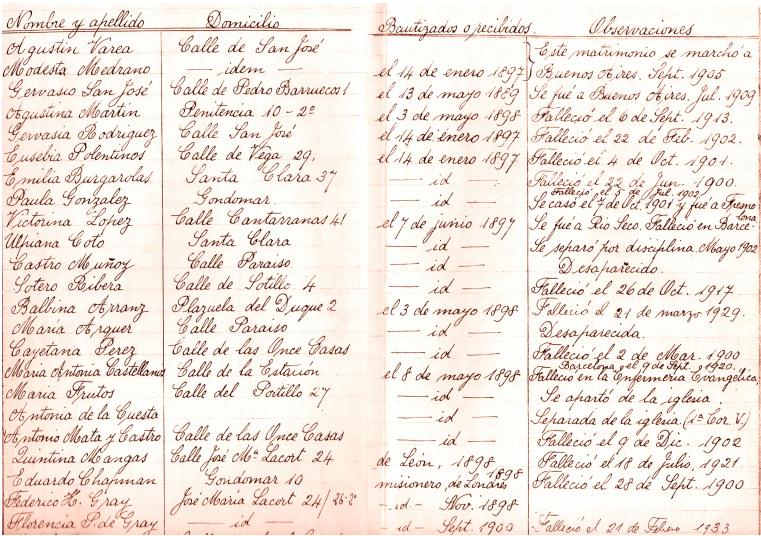 Nombre y apellido Domicilio Bautizados o recibidos. Observaciones
Agustin Varea Calle de San José Este matrimonio se marchó a
Modesta Medrano — idem — el 14 de enero 1897 Buenos Aires. Sept. 1905
Gervasio San José Calle de Pedro Barruecos 1 el 13 de mayo 1889 Se fué a Buenos Aires. Jul. 1909
Agustina Martin Penitencia 10-2º el 3 de mayo 1898 Falleció el 6 de Sept. 1913.
Gervasia Rodriguez Calle San José el 14 de enero 1897 Falleció el 22 de Feb. 1902.
Eusebia Polentinos Calle de Vega 29. el 14 de enero 1897 Falleció el 4 de Oct. 1901.
Emilia Burgarolas Santa Clara 37 — id — Falleció el 22 de Jun. 1900
Falleció el 5 de Jul. 1902
Paula Gonzalez Gondomar. — id — Se casó el 7 de Oct. 1901 y fué a
Victorina López Calle Cantarranas 41 el 7 de junio 1897 Se fué a Rio Seco. Falleció en Barcelona
Ulpiana Coto Santa Clara — id — Se separó por disciplina. Mayo 1902
Castro Muñoz Calle Paraiso — id — Desaparecido.
Sotero Ribera Calle de Sotillo 4 — id — Falleció el 26 de Oct. 1917
Balbina Arranz Plazuela del Duque 2 el 3 de mayo 1898 Falleció el 21 de marzo 1929.
Maria Arguer Calle Paraiso — id — Desaparecida.
Cayetana Perez Calle de las Once Casas — id — Falleció el 2 de Mar. 1900
Barcelona, el 9 de Sept. 1920.
Maria Antonia Castellanos Calle de la Estacion el 8 de mayo 1898 Falleció en la Enfermeria Evangélica,
Maria Frutos Calle del Portillo 27 — id — Se apartó de la iglesia.
Antonia de la Cuesta — id — Separada de la iglesia. (1ª Cor. V.)
Antonio Mata y Castro Calle de las Once Casas — id — Falleció el 9 de Dic. 1902
Quintina Mangas Calle José Mª Lacort 24 de León, 1898 Falleció el 18 de Julio, 1921.
Eduardo Chapman Gondomar 10 misionero, de Londres 1898 Falleció el 28 de Sept. 1900
Federico H. Gray José Maria Lacort 24/26-2º - id. - Nov. 1898
Florencia P. de Gray — id — - id - Sept. 1900 Falleció el 21 de Febrero 1933